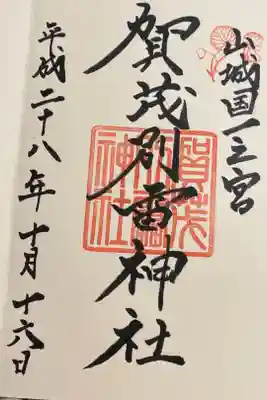 山城国一之宮
賀茂別雷神社
平成二十八年十月十六日
賀茂別雷神社